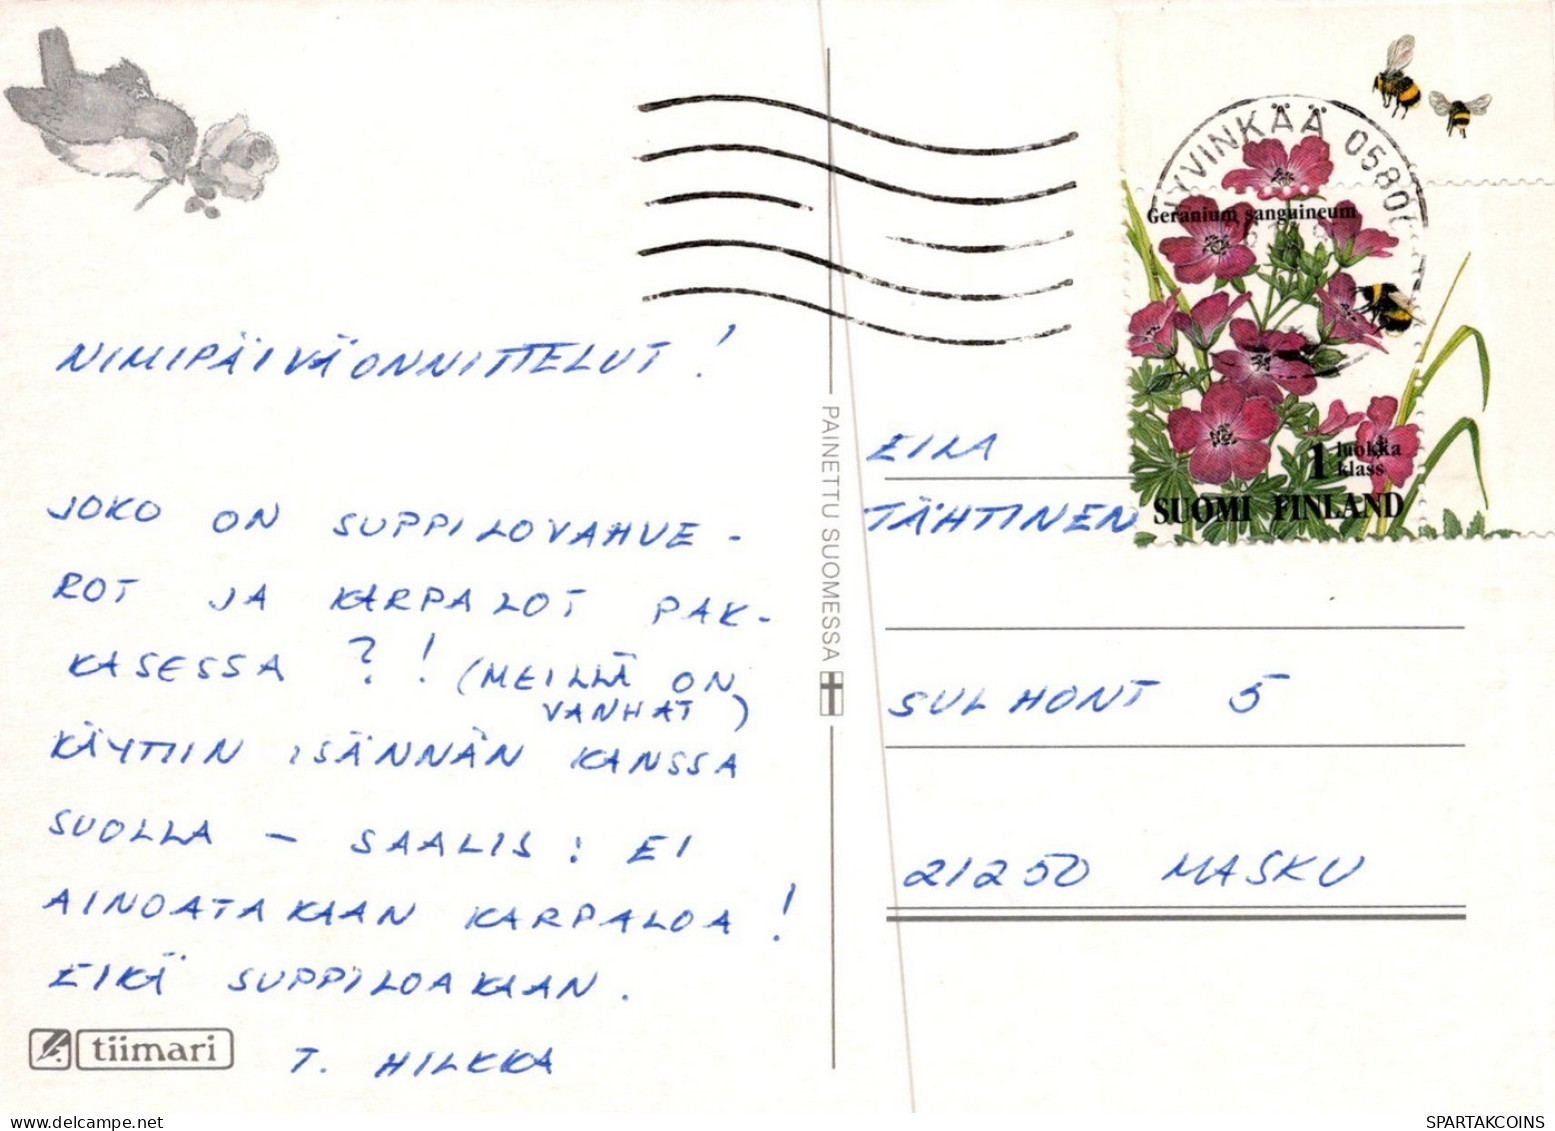 NIMIPÄIVÄONNITTELUT !
JOKO ON SUPPILOVAHVE-
ROT JA KARPALOT PAK-
KASESSA ? ! (MEILLÄ ON
VANHAT)
KÄYTIIN ISÄNNÄN KANSSA
SUOLLA – SAALIS : EI
AINOATAKAAN KARPALOA !
EIKÄ SUPPILOAKAAN.
T. HILKKA
tiimari
PAINETTU SUOMESSA
HYVINKÄÄ 05800
Geranium sanguineum
1 luokka
klass
SUOMI FINLAND
EILA
TÄHTINEN
SULHONT 5
21250 MASKU
SPARTAKCOINS